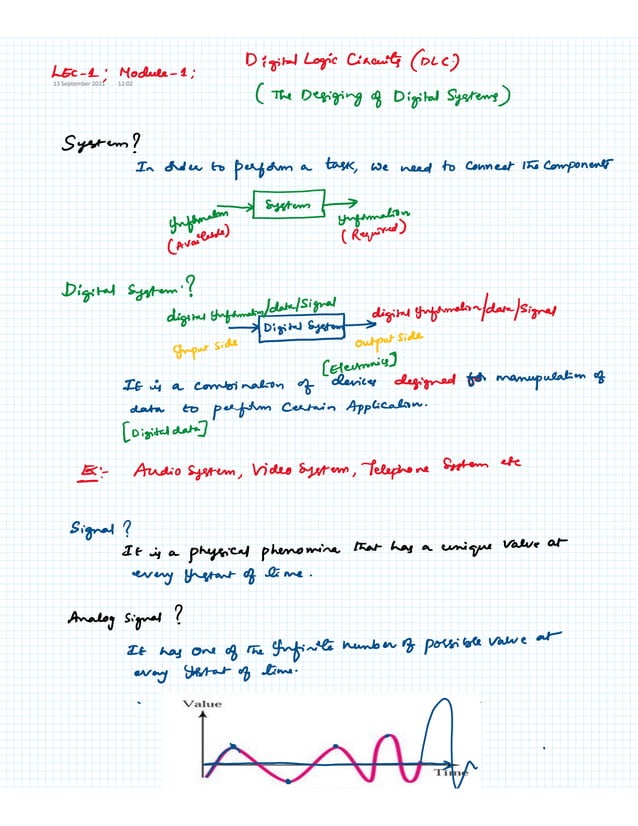 Digital Logic Circuits (DLC)
LEC-1; Module-1;
13 September 2021 12:02
(The Desiging of Digital Systems)
System?
In order to perform a task, we need to connect the components
System
Information
(Available)
Information
(Required)
Digital System?
digital Information/data/signal
digital Information/data/signal
Digital System
Input side
output side
[Electronics]
It is a combination of devices designed for manupulation of
data to perform certain Application.
[Digital data]
Ex:- Audio System, Video System, Telephone System etc
Signal?
It is a physical phenomina that has a unique value at
every Instant of time.
Analog Signal?
It has one of the Infinite number of possible value at
every Instant of time.
Value
Time